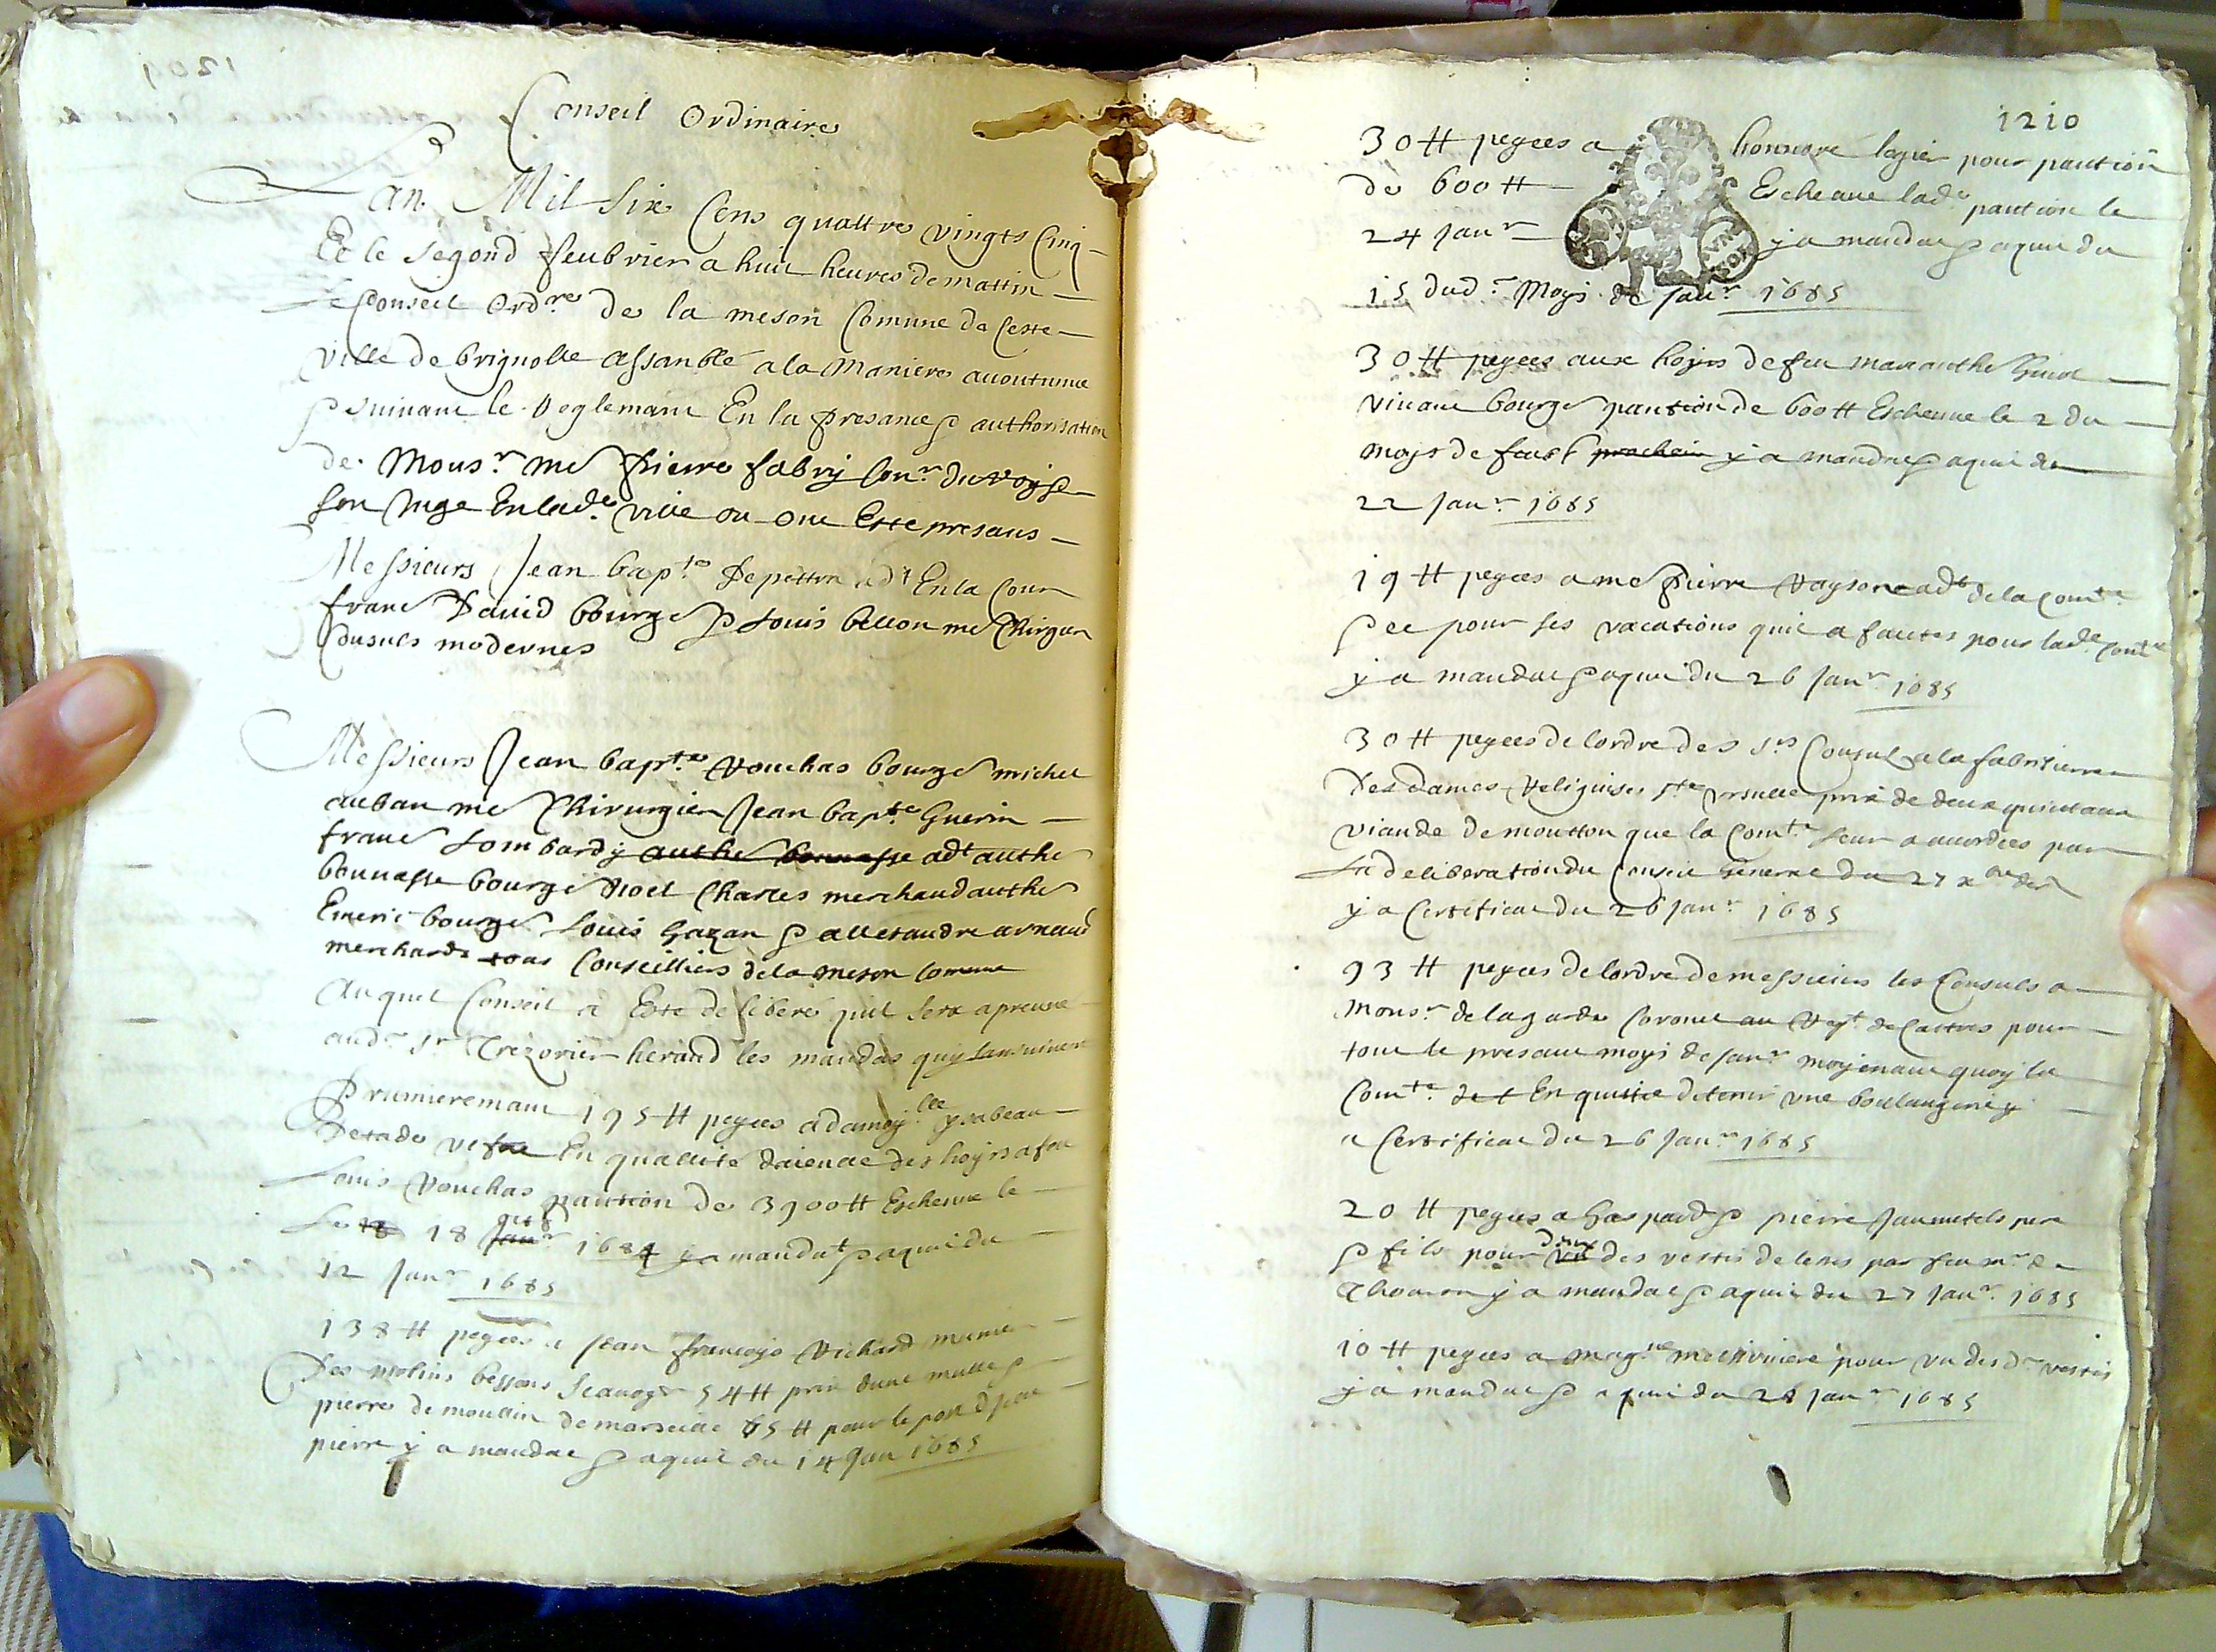 Conseil Ordinaire
Lan Mil Six Cens quattre vingts Cinq
Et le segond feubrier a huit heures de mattin
Le Conseil Ordre de la meson Comune de Ceste
ville de brignolle assanblé a la maniere
suivant le reglemant En la presance & authorisation
de Monsr me Pierre fabry Conr du Roy &
son Juge En lade ville ou ont Esté presans
Messieurs Jean bapte adt En la Cour
franc David bourge & Louis bellon me Chirgun
Consuls modernes
Messieurs Jean bapte bourge michel
auban me Chirurgien Jean bapte Guerin
franc Lombard adt anthe
bonnasse bourge noel Charles merchand anthe
Emeric bourge Louis Gazan & allexandre arnaud
merchands tous Conseilliers de la meson Comune
Auquel Conseil a Esté deliberé quil sera apreuvé
aud sr Trezorier heraud les mandas quy sansuivent
Prumieremant 195 ₶ peyees a damoylle ysabeau
En quallité des hoyrs a feu
Louis pantion de 3900 ₶ Escheue le
18 1684 y a mandat & aquit du
12 Janr 1685
138 ₶ peyees a Jean francoys Richard munier
des molins bessons scavoyr 54 ₶ prix dune mulle &
pierre de moullin de marseille 65 ₶ pour le port
pierre y a mandat & aquit du 14 Jan 1685
1210
30 ₶ peyees a honnore legier pour pantion
de 600 ₶ Escheue lade pantion le
24 Janr y a mandat & aquit du
15 dud Moys de Janr 1685
30 ₶ peyees aux hoyrs de feu marc anthe
vivant bourge pantion de 600 ₶ Escheue le 2 du
moys de prochein y a mandat & aquit du
22 Janr 1685
19 ₶ peyees a me Pierre adt de la Comte
& ce pour ses vacations quil a faites pour lade Comte
y a mandat & aquit du 26 Janr 1685
30 ₶ peyees de lordre des srs Consuls a la
des dames Religuises ste ursulle prix de deux quintaux
viande de moutton que la Comte leur a accordees par
la deliberation du Conseil general du 27
y a Certificat du 26 Janr 1685
93 ₶ peyees de lordre de messieurs les Consuls a
Monsr de lagarde Coronel au Regt de Castres pour
tout le presant moys de Janr moyenant quoy la
Comte est En quittee de tenir une boulangerie y
a Certificat du 26 Janr 1685
20 ₶ peyees a Gaspard & pierre pere
& fils pour deux des vestis de leurs par feu mr de
Thoaron y a mandat & aquit du 27 Janr 1685
10 ₶ peyees a pour un des ds vestis
y a mandat & aquit du 28 Janr 1685